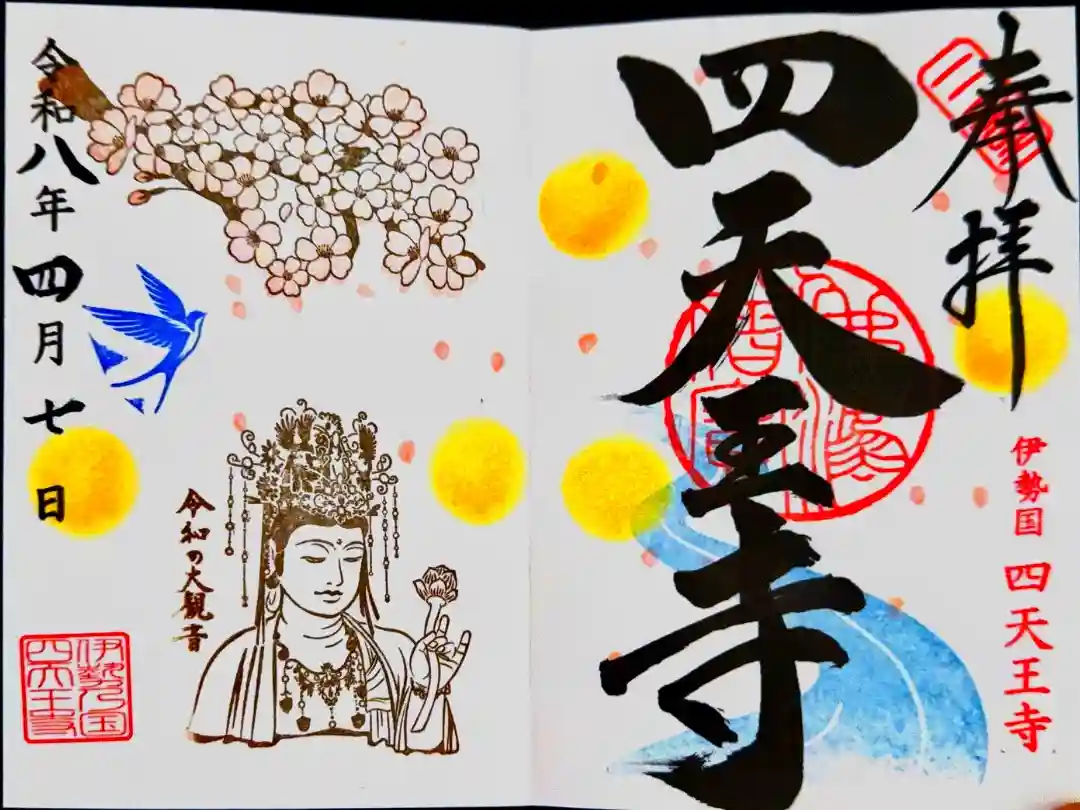 奉拝
四天王寺
伊勢国
四天王寺
令和八年四月七日
令和の大観音
伊勢乃国
四天王寺